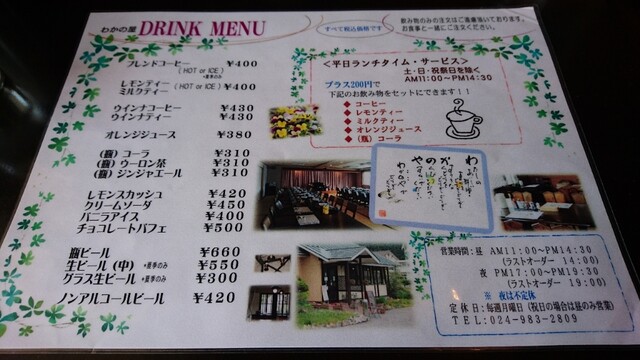 わかの屋 DRINK MENU
すべて税込価格です
飲み物のみの注文はご遠慮頂いております。
お食事と一緒にご注文ください。
ブレンドコーヒー ¥400
(HOT or ICE)
レモンティー (HOT or ICE) ¥400
ミルクティー
ウインナコーヒー ¥430
ウインナティー ¥430
オレンジジュース ¥380
(瓶)コーラ ¥310
(瓶)ウーロン茶 ¥310
(瓶)ジンジャエール ¥310
レモンスカッシュ ¥420
クリームソーダ ¥450
バニラアイス ¥400
チョコレートパフェ ¥500
瓶ビール ¥660
生ビール(中) *夏季のみ ¥550
グラス生ビール *夏季のみ ¥300
ノンアルコールビール ¥420
<平日ランチタイム・サービス>
土・日・祝祭日を除く
AM11:00~PM14:30
プラス200円で
下記のお飲み物をセットにできます!!
◆ コーヒー
◆ レモンティー
◆ ミルクティー
◆ オレンジジュース
◆ (瓶)コーラ
営業時間:昼 AM11:00~PM14:30
(ラストオーダー 14:00)
夜 PM17:00~PM19:30
(ラストオーダー 19:00)
※ 夜は不定休
定休日:毎週月曜日(祝日の場合は昼のみ営業)
TEL:024-983-2809